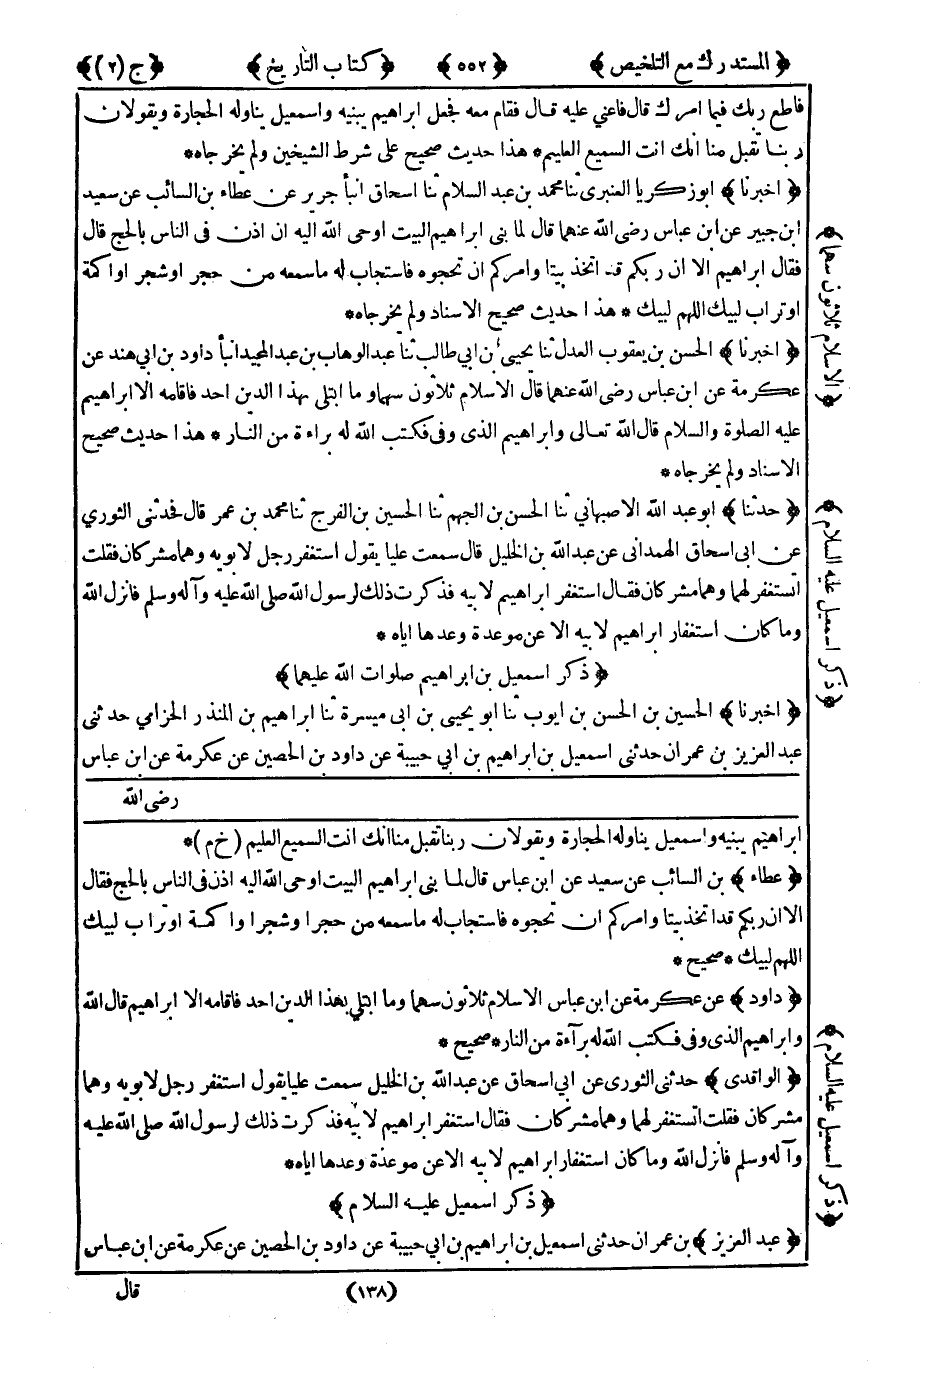 ﴿ المستدرك مع التلخيص ﴾ ﴿ ٥٥٢ ﴾ ﴿ كتاب التاريخ ﴾ ﴿ ج (٢) ﴾
فاطع ربك فيما امرك قال فاعني عليه قال فقام معه فجعل ابراهيم يبنيه واسمعيل يناوله الحجارة ويقولان
ربنا تقبل منا انك انت السميع العليم * هذا حديث صحيح على شرط الشيخين ولم يخرجاه *
﴿ اخبرنا ﴾ ابو زكريا العنبرى ثنا محمد بن عبد السلام ثنا اسحاق انبأ جرير عن عطاء بن السائب عن سعيد
ابن جبير عن ابن عباس رضى الله عنهما قال لما بنى ابراهيم البيت اوحى الله اليه ان اذن فى الناس بالحج قال
فقال ابراهيم الا ان ربكم قد اتخذ بيتا وامركم ان تحجوه فاستجاب له ماسمعه من حجر او شجر او اكمة
او تراب لبيك اللهم لبيك * هذا حديث صحيح الاسناد ولم يخرجاه *
﴿ اخبرنا ﴾ الحسن بن يعقوب العدل ثنا يحيى بن ابي طالب ثنا عبد الوهاب بن عبد المجيد انبأ داود بن ابي هند عن
عكرمة عن ابن عباس رضى الله عنهما قال الاسلام ثلاثون سهما وما ابتلى بهذا الدين احد فاقامه الا ابراهيم
عليه الصلوة والسلام قال الله تعالى وابراهيم الذى وفى فكتب الله له براءة من النار * هذا حديث صحيح
الاسناد ولم يخرجاه *
﴿ حدثنا ﴾ ابو عبد الله الاصبهاني ثنا الحسن بن الجهم ثنا الحسين بن الفرج ثنا محمد بن عمر قال فحدثنى الثوري
عن ابى اسحاق الهمدانى عن عبد الله بن الخليل قال سمعت عليا يقول استغفر رجل لابويه وهما مشركان فقلت
اتستغفر لهما وهما مشركان فقال استغفر ابراهيم لابيه فذكرت ذلك لرسول الله صلى الله عليه وآله وسلم فانزل الله
وما كان استغفار ابراهيم لابيه الا عن موعدة وعدها اياه *
﴿ ذكر اسمعيل بن ابراهيم صلوات الله عليهما ﴾
﴿ اخبرنا ﴾ الحسين بن الحسن بن ايوب ثنا ابو يحيى بن ابى ميسرة ثنا ابراهيم بن المنذر الحزامي حدثنى
عبد العزيز بن عمران حدثنى اسمعيل بن ابراهيم بن ابي حبيبة عن داود بن الحصين عن عكرمة عن ابن عباس
رضى الله
ابراهيم يبنيه واسمعيل يناوله الحجارة ويقولان ربنا تقبل منا انك انت السميع العليم (خ م) *
﴿ عطاء ﴾ بن السائب عن سعيد عن ابن عباس قال لما بنى ابراهيم البيت اوحى الله اليه اذن فى الناس بالحج فقال
الا ان ربكم قد اتخذ بيتا وامركم ان تحجوه فاستجاب له ماسمعه من حجرا وشجرا واكمة او تراب لبيك
اللهم لبيك * صحيح *
﴿ داود ﴾ عن عكرمة عن ابن عباس الاسلام ثلاثون سهما وما ابتلي بهذا الدين احد فاقامه الا ابراهيم قال الله
وابراهيم الذى وفى فكتب الله له برآءة من النار * صحيح *
﴿ الواقدى ﴾ حدثنى الثورى عن ابي اسحاق عن عبد الله بن الخليل سمعت عليا يقول استغفر رجل لابويه وهما
مشركان فقلت اتستغفر لهما وهما مشركان فقال استغفر ابراهيم لابيه فذكرت ذلك لرسول الله صلى الله عليه
وآله وسلم فانزل الله وما كان استغفار ابراهيم لابيه الا عن موعدة وعدها اياه *
﴿ ذكر اسمعيل عليه السلام ﴾
﴿ عبد العزيز ﴾ بن عمران حدثنى اسمعيل بن ابراهيم بن ابي حبيبة عن داود بن الحصين عن عكرمة عن ابن عباس
(١٣٨) قال
﴿ الاسلام ثلاثون سهما ﴾
﴿ ذكر اسمعيل عليه السلام ﴾
﴿ ذكر اسمعيل عليه السلام ﴾